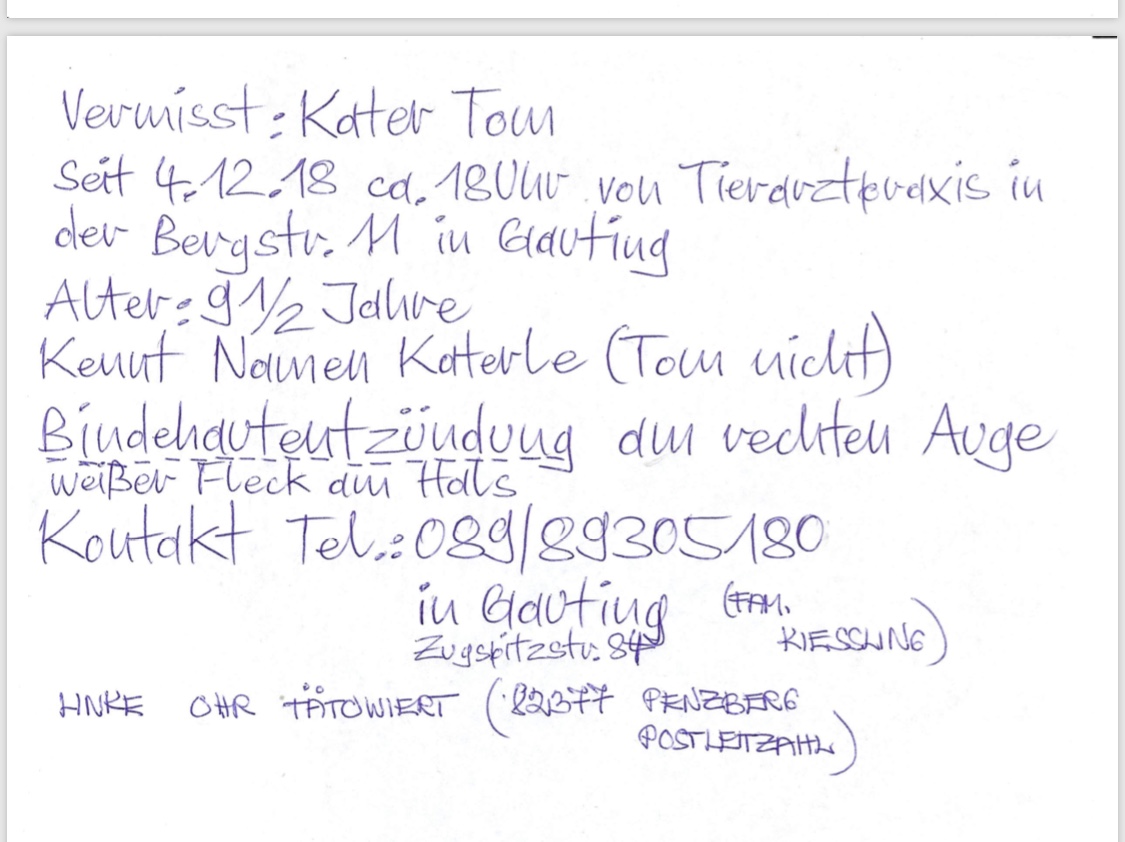 Vermisst: Kater Tom
Seit 4.12.18 ca. 18 Uhr von Tierarztpraxis in
der Bergstr. 11 in Gauting
Alter: 9 1/2 Jahre
Kennt Namen Katerle (Tom nicht)
Bindehautentzündung am rechten Auge
weißer Fleck am Hals
Kontakt Tel.: 089/89305180
in Gauting (FAM.
Zugspitzstr. 84 KIESSLING)
LINKE OHR TÄTOWIERT (82377 PENZBERG
POSTLEITZAHL)